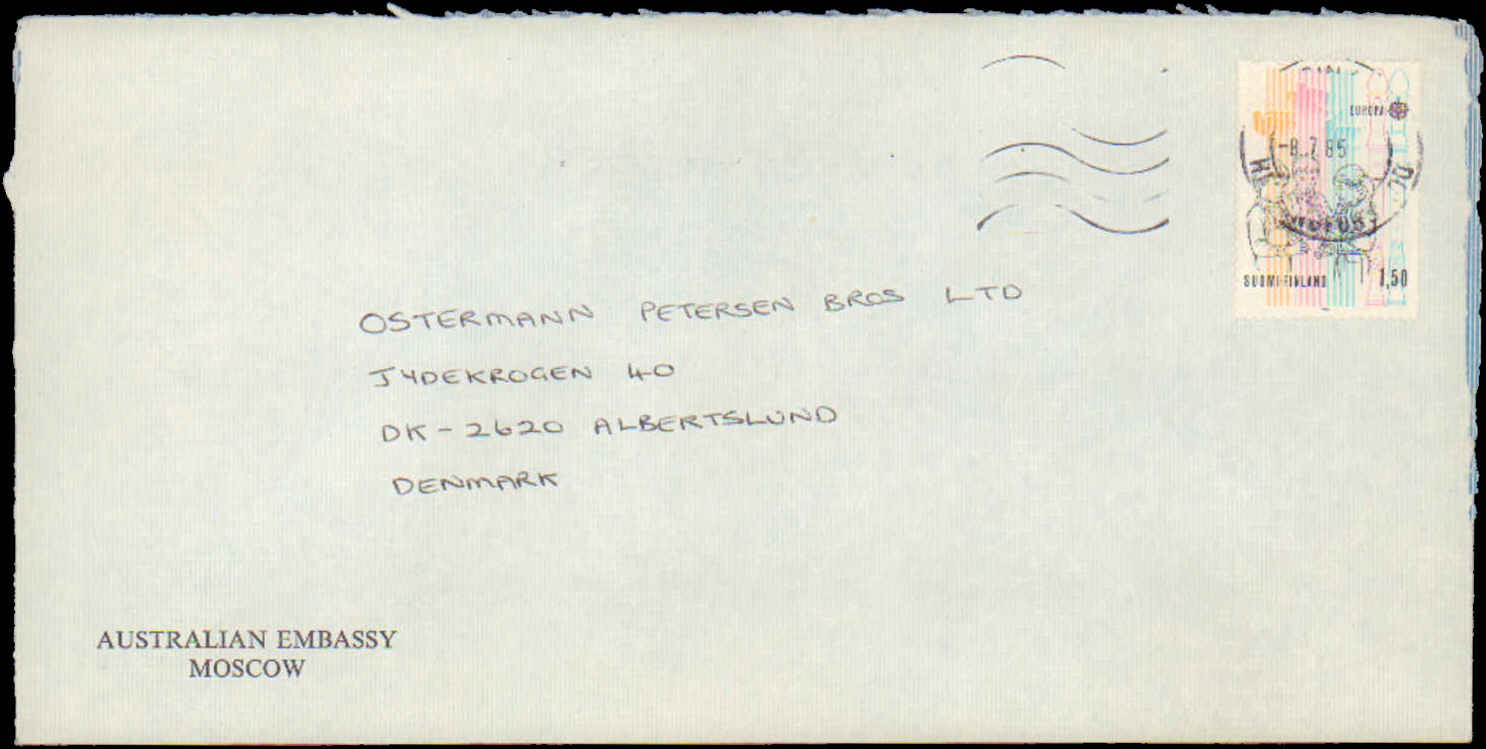 EUROPA
-8.7.85
SUOMI-FINLAND 1,50
OSTERMANN PETERSEN BROS LTD
JYDEKROGEN 40
DK-2620 ALBERTSLUND
DENMARK
AUSTRALIAN EMBASSY
MOSCOW